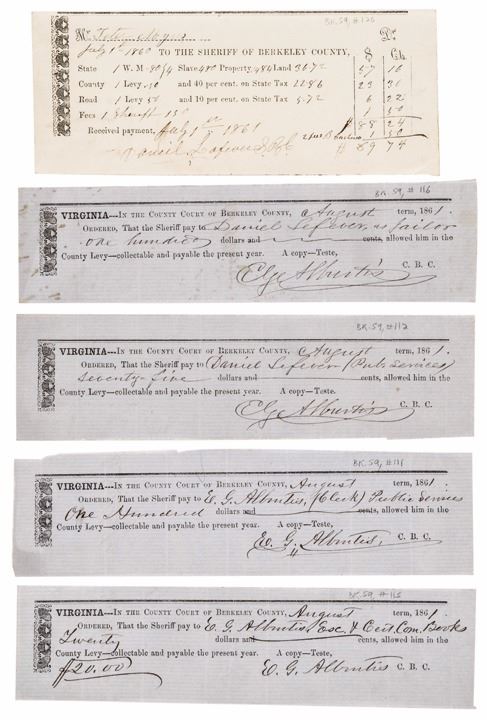 BK. 59, #126
Mr.
Dr.
July 1st 1860 TO THE SHERIFF OF BERKELEY COUNTY, $ Cts.
State 1 W. M— Slave 480 Property, 486 Land 3672 57 16
County 1 Levy and 40 per cent. on State Tax 2286 23 36
Road 1 Levy 50 and 10 per cent. on State Tax 5.72 6 22
Fees 1 Sheriff 150 1 50
$ 88 24
Received payment, July 1st 1861 1 50
Daniel Lafever $ 89 74
BK. 59, #116
VIRGINIA—IN THE COUNTY COURT OF BERKELEY COUNTY, August term, 1861.
ORDERED, That the Sheriff pay to Daniel Lefever, as Jailor
one hundred dollars and cents, allowed him in the
County Levy—collectable and payable the present year. A copy—Teste,
C. B. C.
BK. 59, #112
VIRGINIA—IN THE COUNTY COURT OF BERKELEY COUNTY, August term, 1861.
ORDERED, That the Sheriff pay to Daniel Lefever (Pub Services)
Seventy-five dollars and cents, allowed him in the
County Levy—collectable and payable the present year. A copy—Teste,
C. B. C.
BK. 59, #111
VIRGINIA—IN THE COUNTY COURT OF BERKELEY COUNTY, August term, 1861.
ORDERED, That the Sheriff pay to E. G. Alburtis, (Clerk) Public Services
One Hundred dollars and cents, allowed him in the
County Levy—collectable and payable the present year. A copy—Teste,
E. G. Alburtis, C. B. C.
BK. 59, #115
VIRGINIA—IN THE COUNTY COURT OF BERKELEY COUNTY, August term, 1861.
ORDERED, That the Sheriff pay to E. G. Alburtis, Books
Twenty dollars and cents, allowed him in the
County Levy—collectable and payable the present year. A copy—Teste,
$20.00 E. G. Alburtis C. B. C.